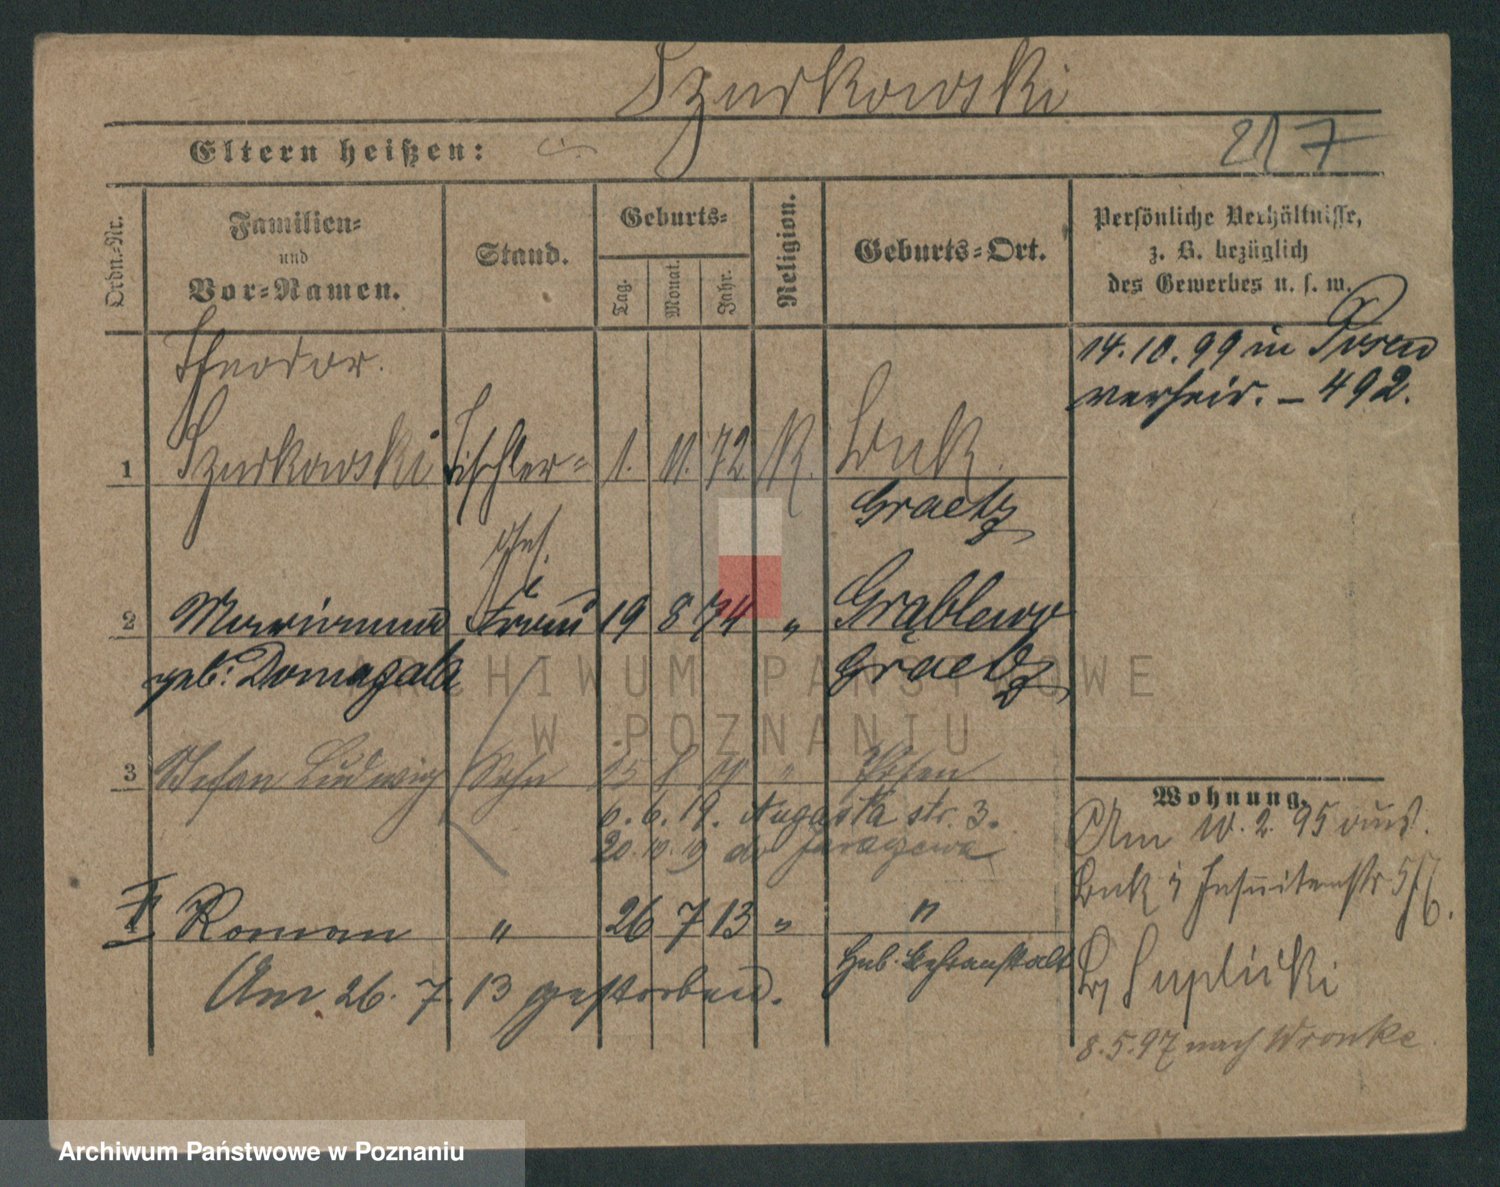 Szurkowski
217
Eltern heißen:
Ordn.-Nr.
Familien-
und
Vor-Namen.
Stand.
Geburts-
Tag.
Monat.
Jahr.
Religion.
Geburts-Ort.
Persönliche Verhältnisse,
z. B. bezüglich
des Gewerbes u. s. w.
Theodor.
14. 10. 99 in Posen
verheir. – 492.
1 Szurkowski Tischler- 1. 11. 72 K. Buk.
Graetz
ges.
2 Marianna Frau 19 8 74 " Grąblewo
geb: Domagala Graetz
3 Stefan Ludwig Sohn 15 8 " Posen
6. 6. 19. Augusta str. 3.
20. 10. 19 do
Wohnung.
Am 10. 2. 95 aus
Buk Jesuitenstr 5/6.
4 Roman " 26 7 13 " "
Heb. Lehranstalt
Am 26. 7. 13 gestorben.
8. 5. 97 nach Wronke
ARCHIWUM PAŃSTWOWE
W POZNANIU
Archiwum Państwowe w Poznaniu